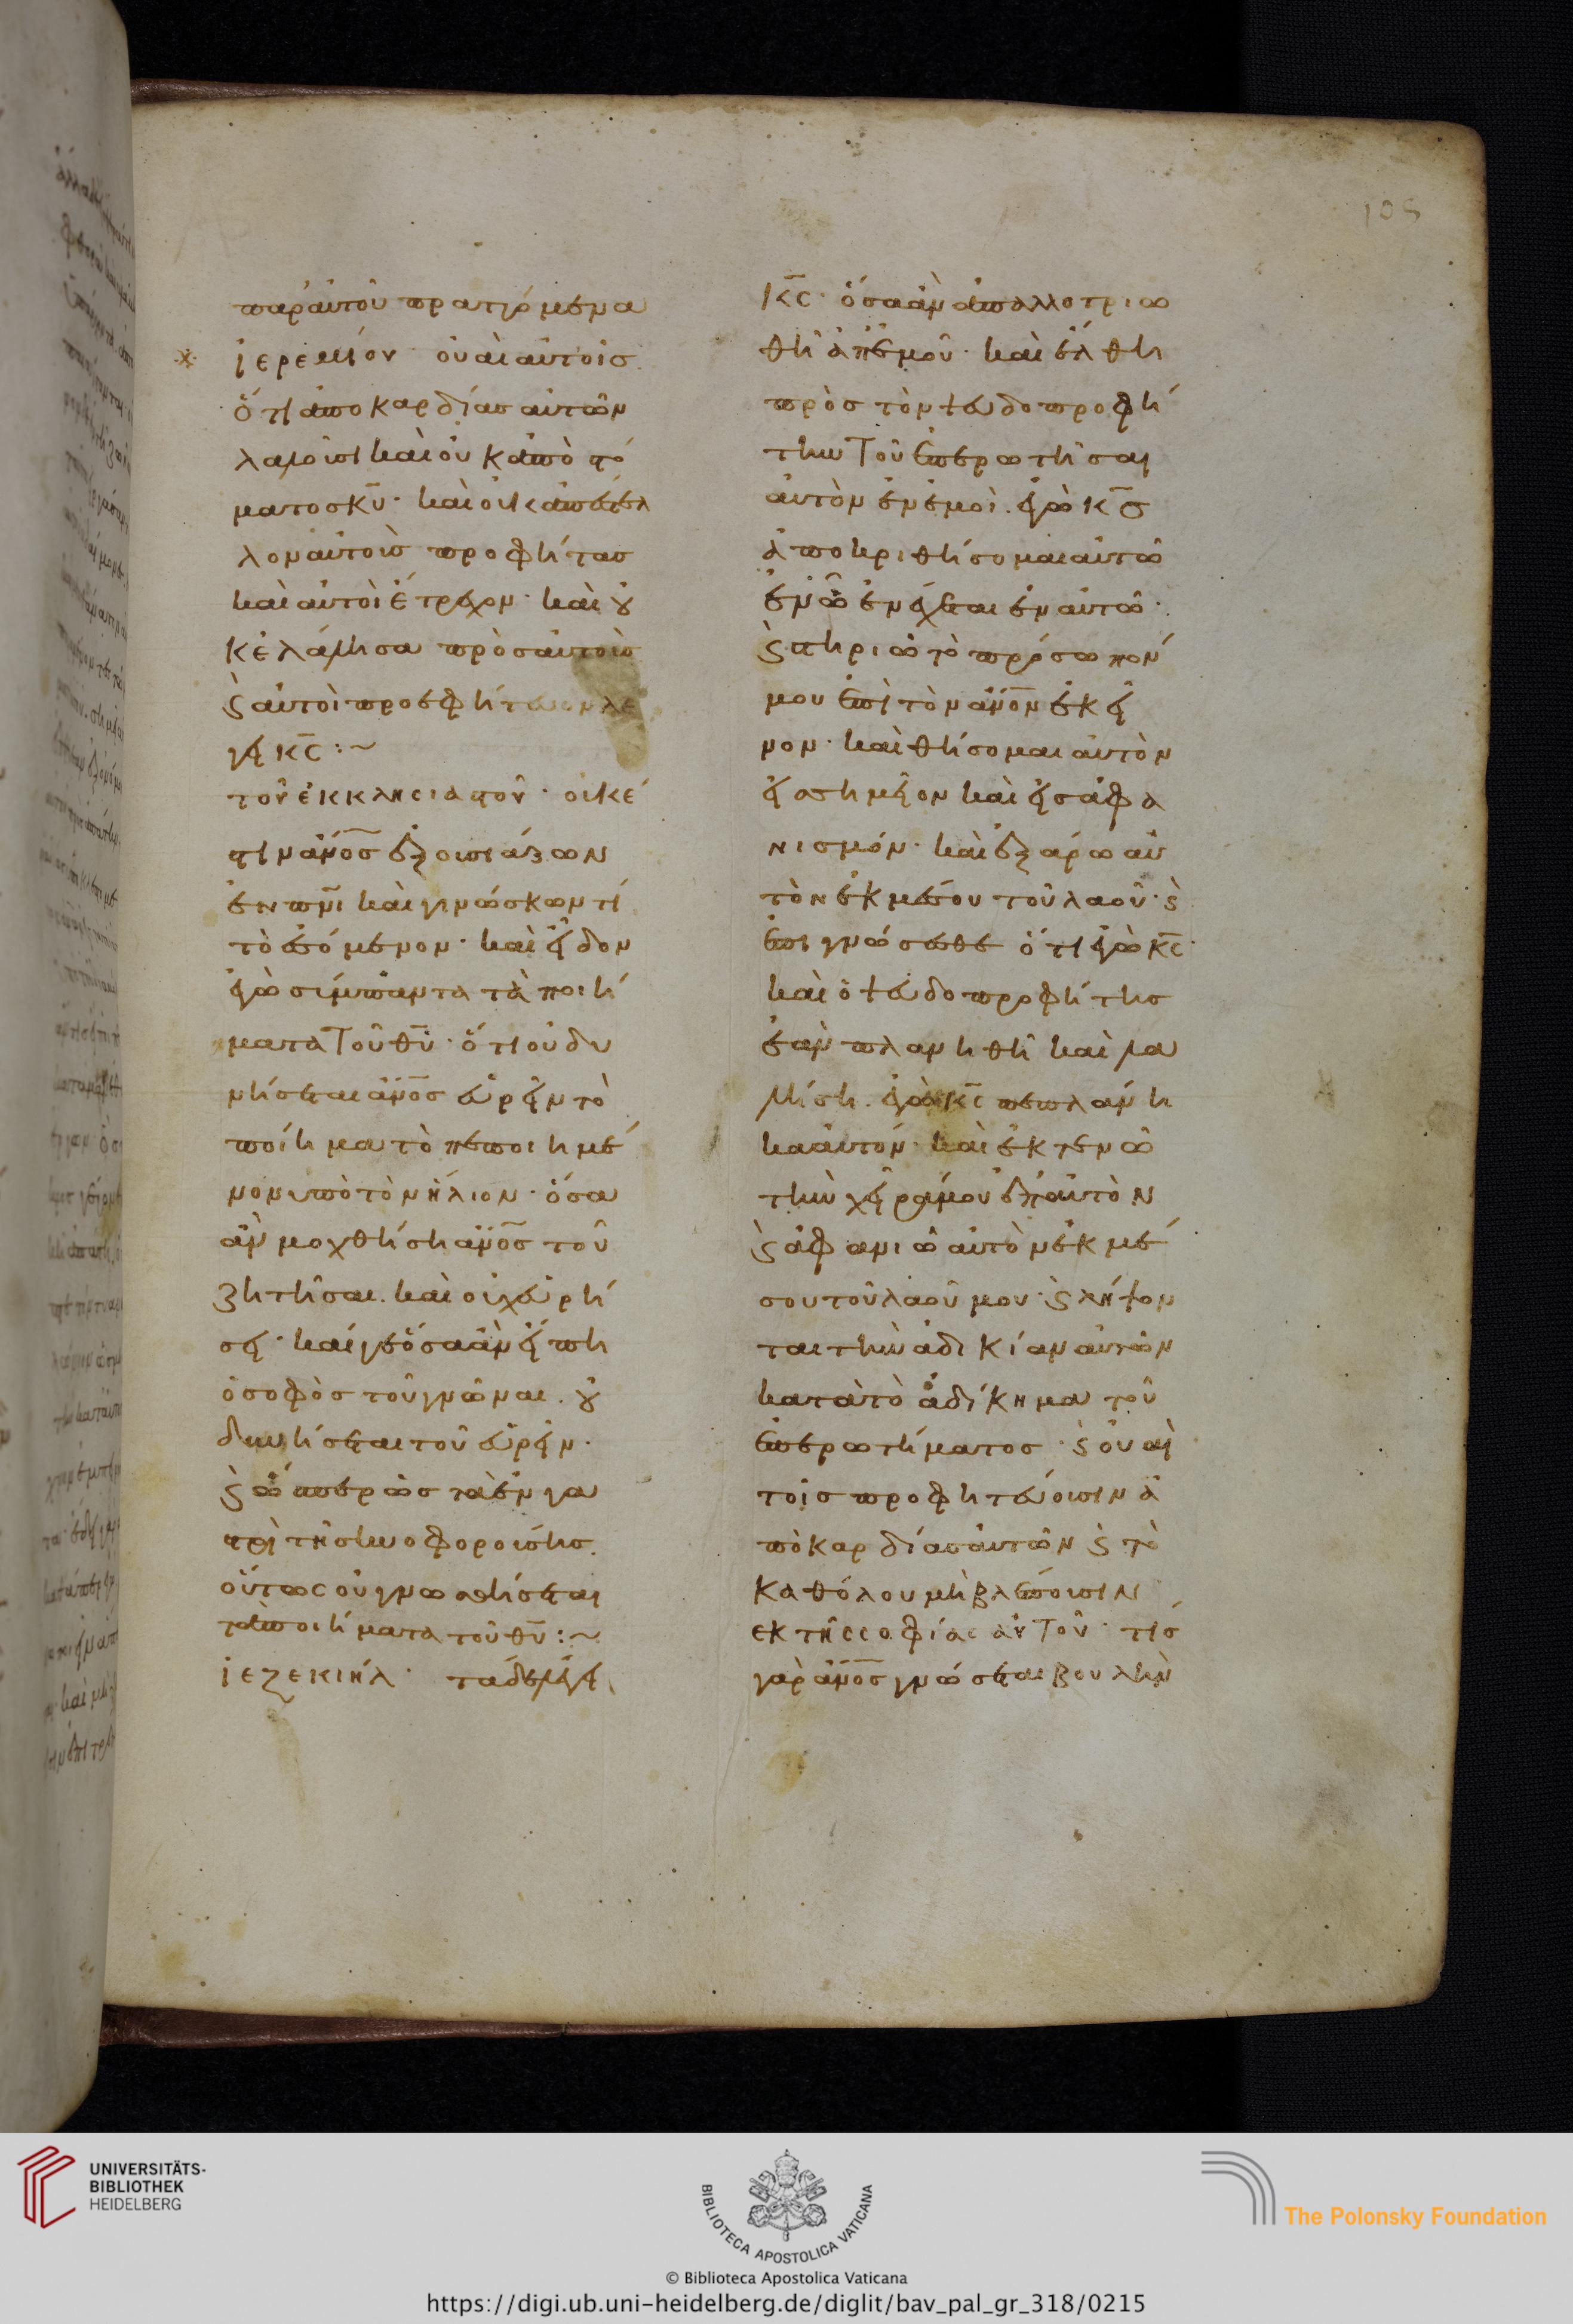 παρ' αὐτοῦ πραττόμενα
ἱερεμίου· οὐαὶ αὐτοῖσ
ὅτι ἀπο καρδίασ αὐτῶν
λαλοῦσι καὶ οὐκ ἀπὸ στό
ματοσ κ̅υ̅· καὶ οὐκ ἀπέστελ
λον αὐτοὺσ προφήτασ
καὶ αὐτοὶ ἔτρεχον· καὶ οὐ
κ ἐλάλησα πρὸσ αὐτοὺσ
ϛ αὐτοὶ προεφήτευον λέ
γει κ̅ς̅ :~
τοῦ ἐκκλησιαστοῦ· οὐκ έ
στιν ἄν̅ο̅σ̅ ἐξουσιάζων
ἐν πν̅ι̅ καὶ γινώσκων τί
τὸ ἐσόμενον· καὶ εἶδον
ἐγὼ σύμπαντα τὰ ποιή
ματα τοῦ θ̅υ̅· ὅτι οὐ δυ
νήσεται ἄν̅ο̅σ̅ εὑρεῖν τὸ
ποίημα τὸ πεποιημέ
νον ὑπὸ τὸν ἥλιον· ὅσα
ἂν μοχθήση ἄν̅ο̅σ̅ τοῦ
ζητῆσαι. καὶ οὐχ εὑρή
σει· καί γε ὅσα ἂν εἴπη
ὁ σοφὸσ τοῦ γνῶναι. οὐ
δυνήσεται τοῦ εὑρεῖν·
ϛ ὥσπερ ὡσ τὰ ἐν γα
στρὶ τῆσ κυοφορούσησ.
οὕτως οὐ γνωσθήσεται
τὰ ποιήματα τοῦ θ̅υ̅ :~
ἰεζεκιήλ· τάδε λέγει
κ̅ς̅· ὅσα ἂν ἀπαλλοτριω
θῆ ἀπ' ἐμοῦ· καὶ ἔλθη
πρὸσ τὸν ψευδοπροφή
την τοῦ ἐπερωτῆσαι
αὐτὸν ἐν ἐμοὶ. ἐγὼ κ̅σ̅
ἀποκριθήσομαι αὐτῶ
ἐν ὧ ἐνέχεται ἐν αὐτῶ·
ϛ στηριῶ τὸ πρόσωπόν
μου ἐπὶ τὸν ἄν̅ο̅ν̅ ἐκεῖ
νον· καὶ θήσομαι αὐτὸν
εἰσ σημεῖον καὶ εἰσ ἀφα
νισμόν· καὶ ἐξαρῶ αὐ
τὸν ἐκ μέσου τοῦ λαοῦ· ϛ
ἐπιγνώσεσθε ὅτι ἐγὼ κ̅ς̅·
καὶ ὁ ψευδοπροφήτησ
ἐὰν πλανηθῆ καὶ λα
λήση. ἐγὼ κ̅ς̅ πεπλάνη
κα αὐτόν· καὶ ἐκτενῶ
τὴν χεῖρά μου ἐπ' αὐτὸν
ϛ ἀφανιῶ αὐτὸν ἐκ μέ
σου τοῦ λαοῦ μου· ϛ λήψον
ται τὴν ἀδικίαν αὐτῶν
κατὰ τὸ ἀδίκημα τοῦ
ἐπερωτήματοσ· ϛ οὐαὶ
τοῖσ προφητεύουσιν ἀ
πὸ καρδίασ αὐτῶν ϛ τὸ
καθόλου μὴ βλέπουσιν
ἐκ τῆς σοφίας αὐτοῦ· τίσ
γὰρ ἄν̅ο̅σ̅ γνώσεται βουλὴν
UNIVERSITÄTS-
BIBLIOTHEK
HEIDELBERG
BIBLIOTECA APOSTOLICA VATICANA
The Polonsky Foundation
© Biblioteca Apostolica Vaticana
https://digi.ub.uni-heidelberg.de/diglit/bav_pal_gr_318/0215